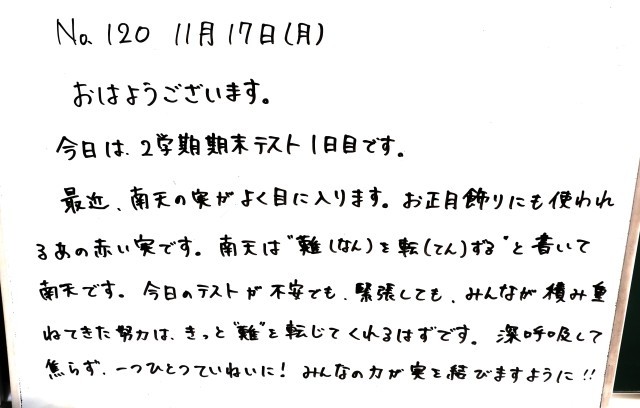 No.120 11月17日(月)
おはようございます。
今日は、2学期期末テスト1日目です。
最近、南天の実がよく目に入ります。お正月飾りにも使われ
るあの赤い実です。南天は"難(なん)を転(てん)ずる"と書いて
南天です。今日のテストが不安でも、緊張しても、みんなが積み重
ねてきた努力は、きっと"難"を転じてくれるはずです。深呼吸して
焦らず、一つひとつていねいに!みんなの力が実を結びますように!!